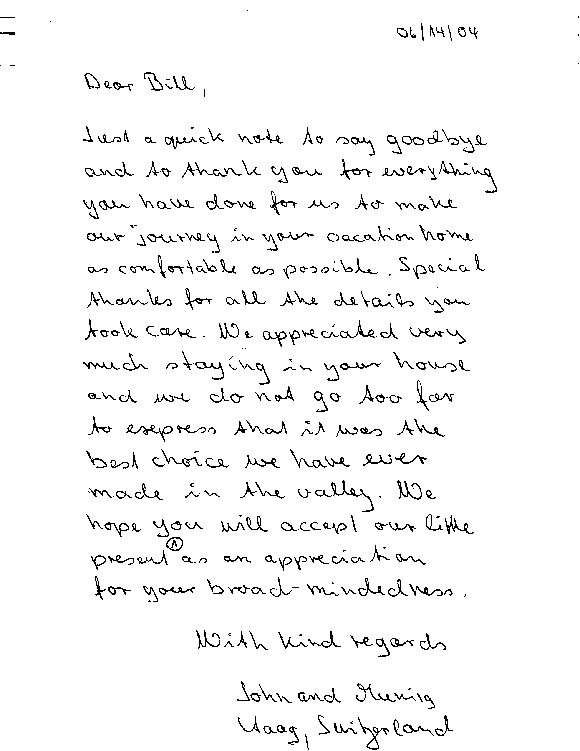 06/14/04
Dear Bill,
Just a quick note to say goodbye
and to thank you for everything
you have done for us to make
our journey in your vacation home
as comfortable as possible. Special
thanks for all the details you
took care. We appreciated very
much staying in your house
and we do not go too far
to exepress that it was the
best choice we have ever
made in the valley. We
hope you will accept our little
present as an appreciation
for your broad-mindedness.
With kind regards
John and
Haag, Switzerland